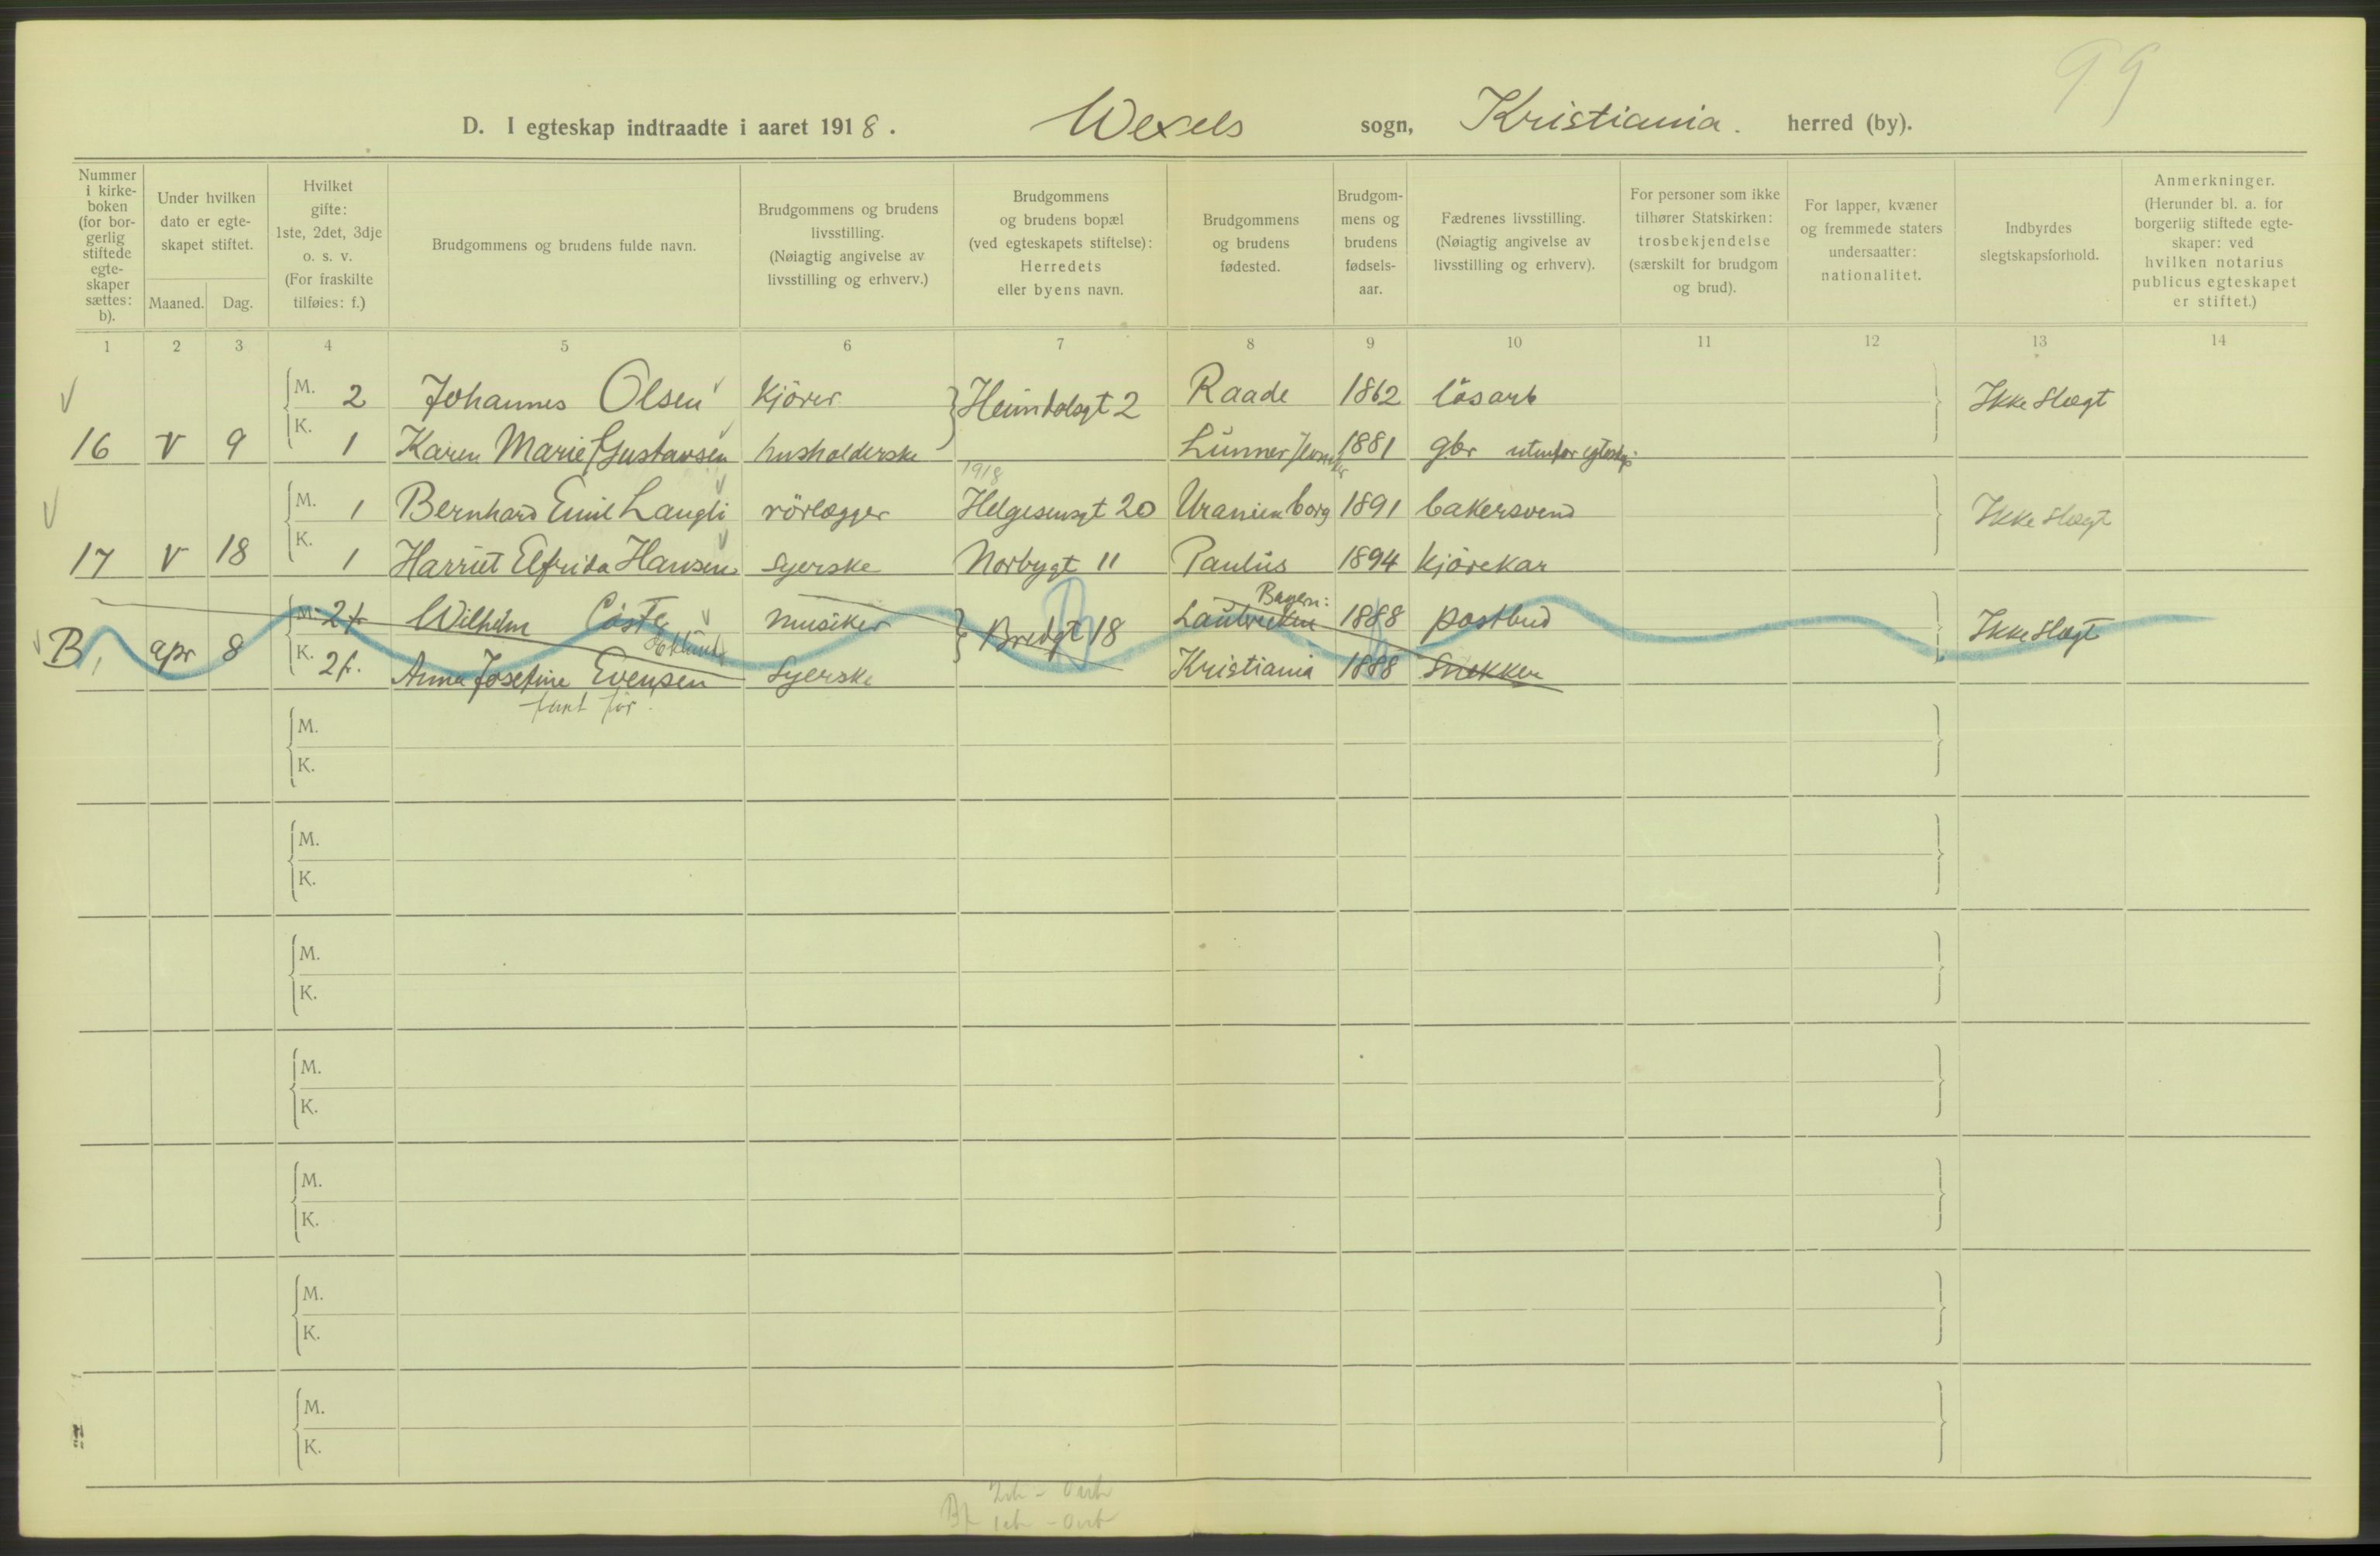 99
D. I egteskap indtraadte i aaret 1918. Wexels sogn, Kristiania. herred (by).
Nummer i kirkeboken (for borgerlig stiftede egteskaper sættes: b).
Under hvilken dato er egteskapet stiftet.
Maaned. Dag.
Hvilket gifte: 1ste, 2det, 3dje o. s. v. (For fraskilte tilføies: f.)
Brudgommens og brudens fulde navn.
Brudgommens og brudens livsstilling. (Nøiagtig angivelse av livsstilling og erhverv.)
Brudgommens og brudens bopæl (ved egteskapets stiftelse): Herredets eller byens navn.
Brudgommens og brudens fødested.
Brudgommens og brudens fødselsaar.
Fædrenes livsstilling. (Nøiagtig angivelse av livsstilling og erhverv).
For personer som ikke tilhører Statskirken: trosbekjendelse (særskilt for brudgom og brud).
For lapper, kvæner og fremmede staters undersaatter: nationalitet.
Indbyrdes slegtskapsforhold.
Anmerkninger. (Herunder bl. a. for borgerlig stiftede egteskaper: ved hvilken notarius publicus egteskapet er stiftet.)
1 2 3 4 5 6 7 8 9 10 11 12 13 14
M. 2 Johannes Olsen Kjörer Heimdalsgt 2 Raade 1862 lösarb Ikke slægt
16 V 9 K. 1 Karen Marie Gustavsen husholderske Lunner 1881 gbr utenfor egteskap.
1918
M. 1 Bernhard Emil Langli rörlægger Helgesensgt 20 Uranienborg 1891 bakersvend Ikke slægt
17 V 18 K. 1 Harriet Elfrida Hansen Syerske Norbygt 11 Paulus 1894 kjörekar
Bayern:
M. 2f. Wilhelm musiker Bredgt 18 1888 postbud Ikke slægt
B, apr 8 K. 2f. Anna Josefine Evensen Syerske Kristiania 1888 Snekker
M.
K.
M.
K.
M.
K.
M.
K.
M.
K.
M.
K.
M.
K.